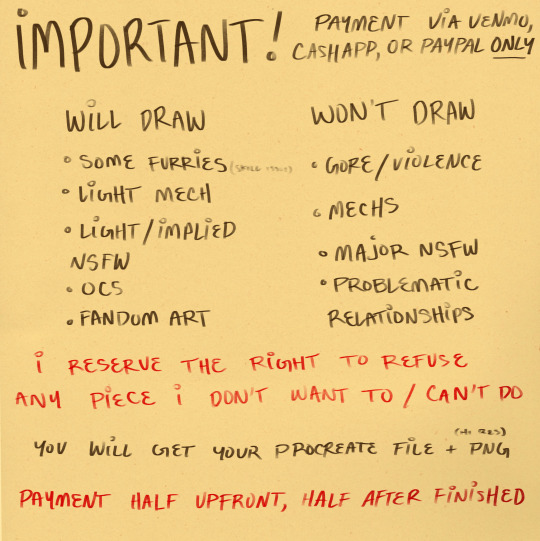 iMPORTANT!
PAYMENT ViA VENMO,
CASHAPP, OR PAYPAL ONLY
WiLL DRAW
• SOME FURRiES (SKiLL iSSUE)
• LiGHT MECH
• LiGHT/iMPLiED
NSFW
• OCS
• FANDOM ART
WON'T DRAW
• GORE/ViOLENCE
• MECHS
• MAJOR NSFW
• PROBLEMATiC
RELATiONSHiPS
i RESERVE THE RiGHT TO REFUSE
ANY PiECE i DON'T WANT TO / CAN'T DO
(Hi RES)
YOU WiLL GET YOUR PROCREATE FiLE + PNG
PAYMENT HALF UPFRONT, HALF AFTER FiNiSHED